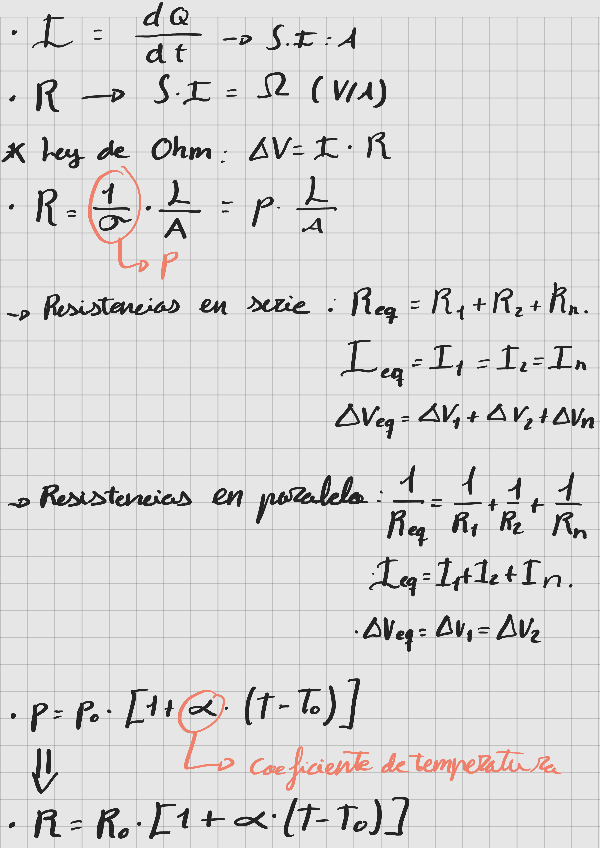 · I = dQ/dt → S.I : A
· R → S.I = Ω (V/A)
* Ley de Ohm: ΔV = I · R
· R = 1/σ · L/A = ρ · L/A
→ ρ
→ Resistencias en serie : Req = R1 + R2 + Rn.
Ieq = I1 = I2 = In
ΔVeq = ΔV1 + ΔV2 + ΔVn
→ Resistencias en paralelo : 1/Req = 1/R1 + 1/R2 + 1/Rn
Ieq = I1 + I2 + In.
· ΔVeq = ΔV1 = ΔV2
· ρ = ρ0 · [1 + α · (T - T0)]
→ coeficiente de temperatura
⇓
· R = R0 · [1 + α · (T - T0)]